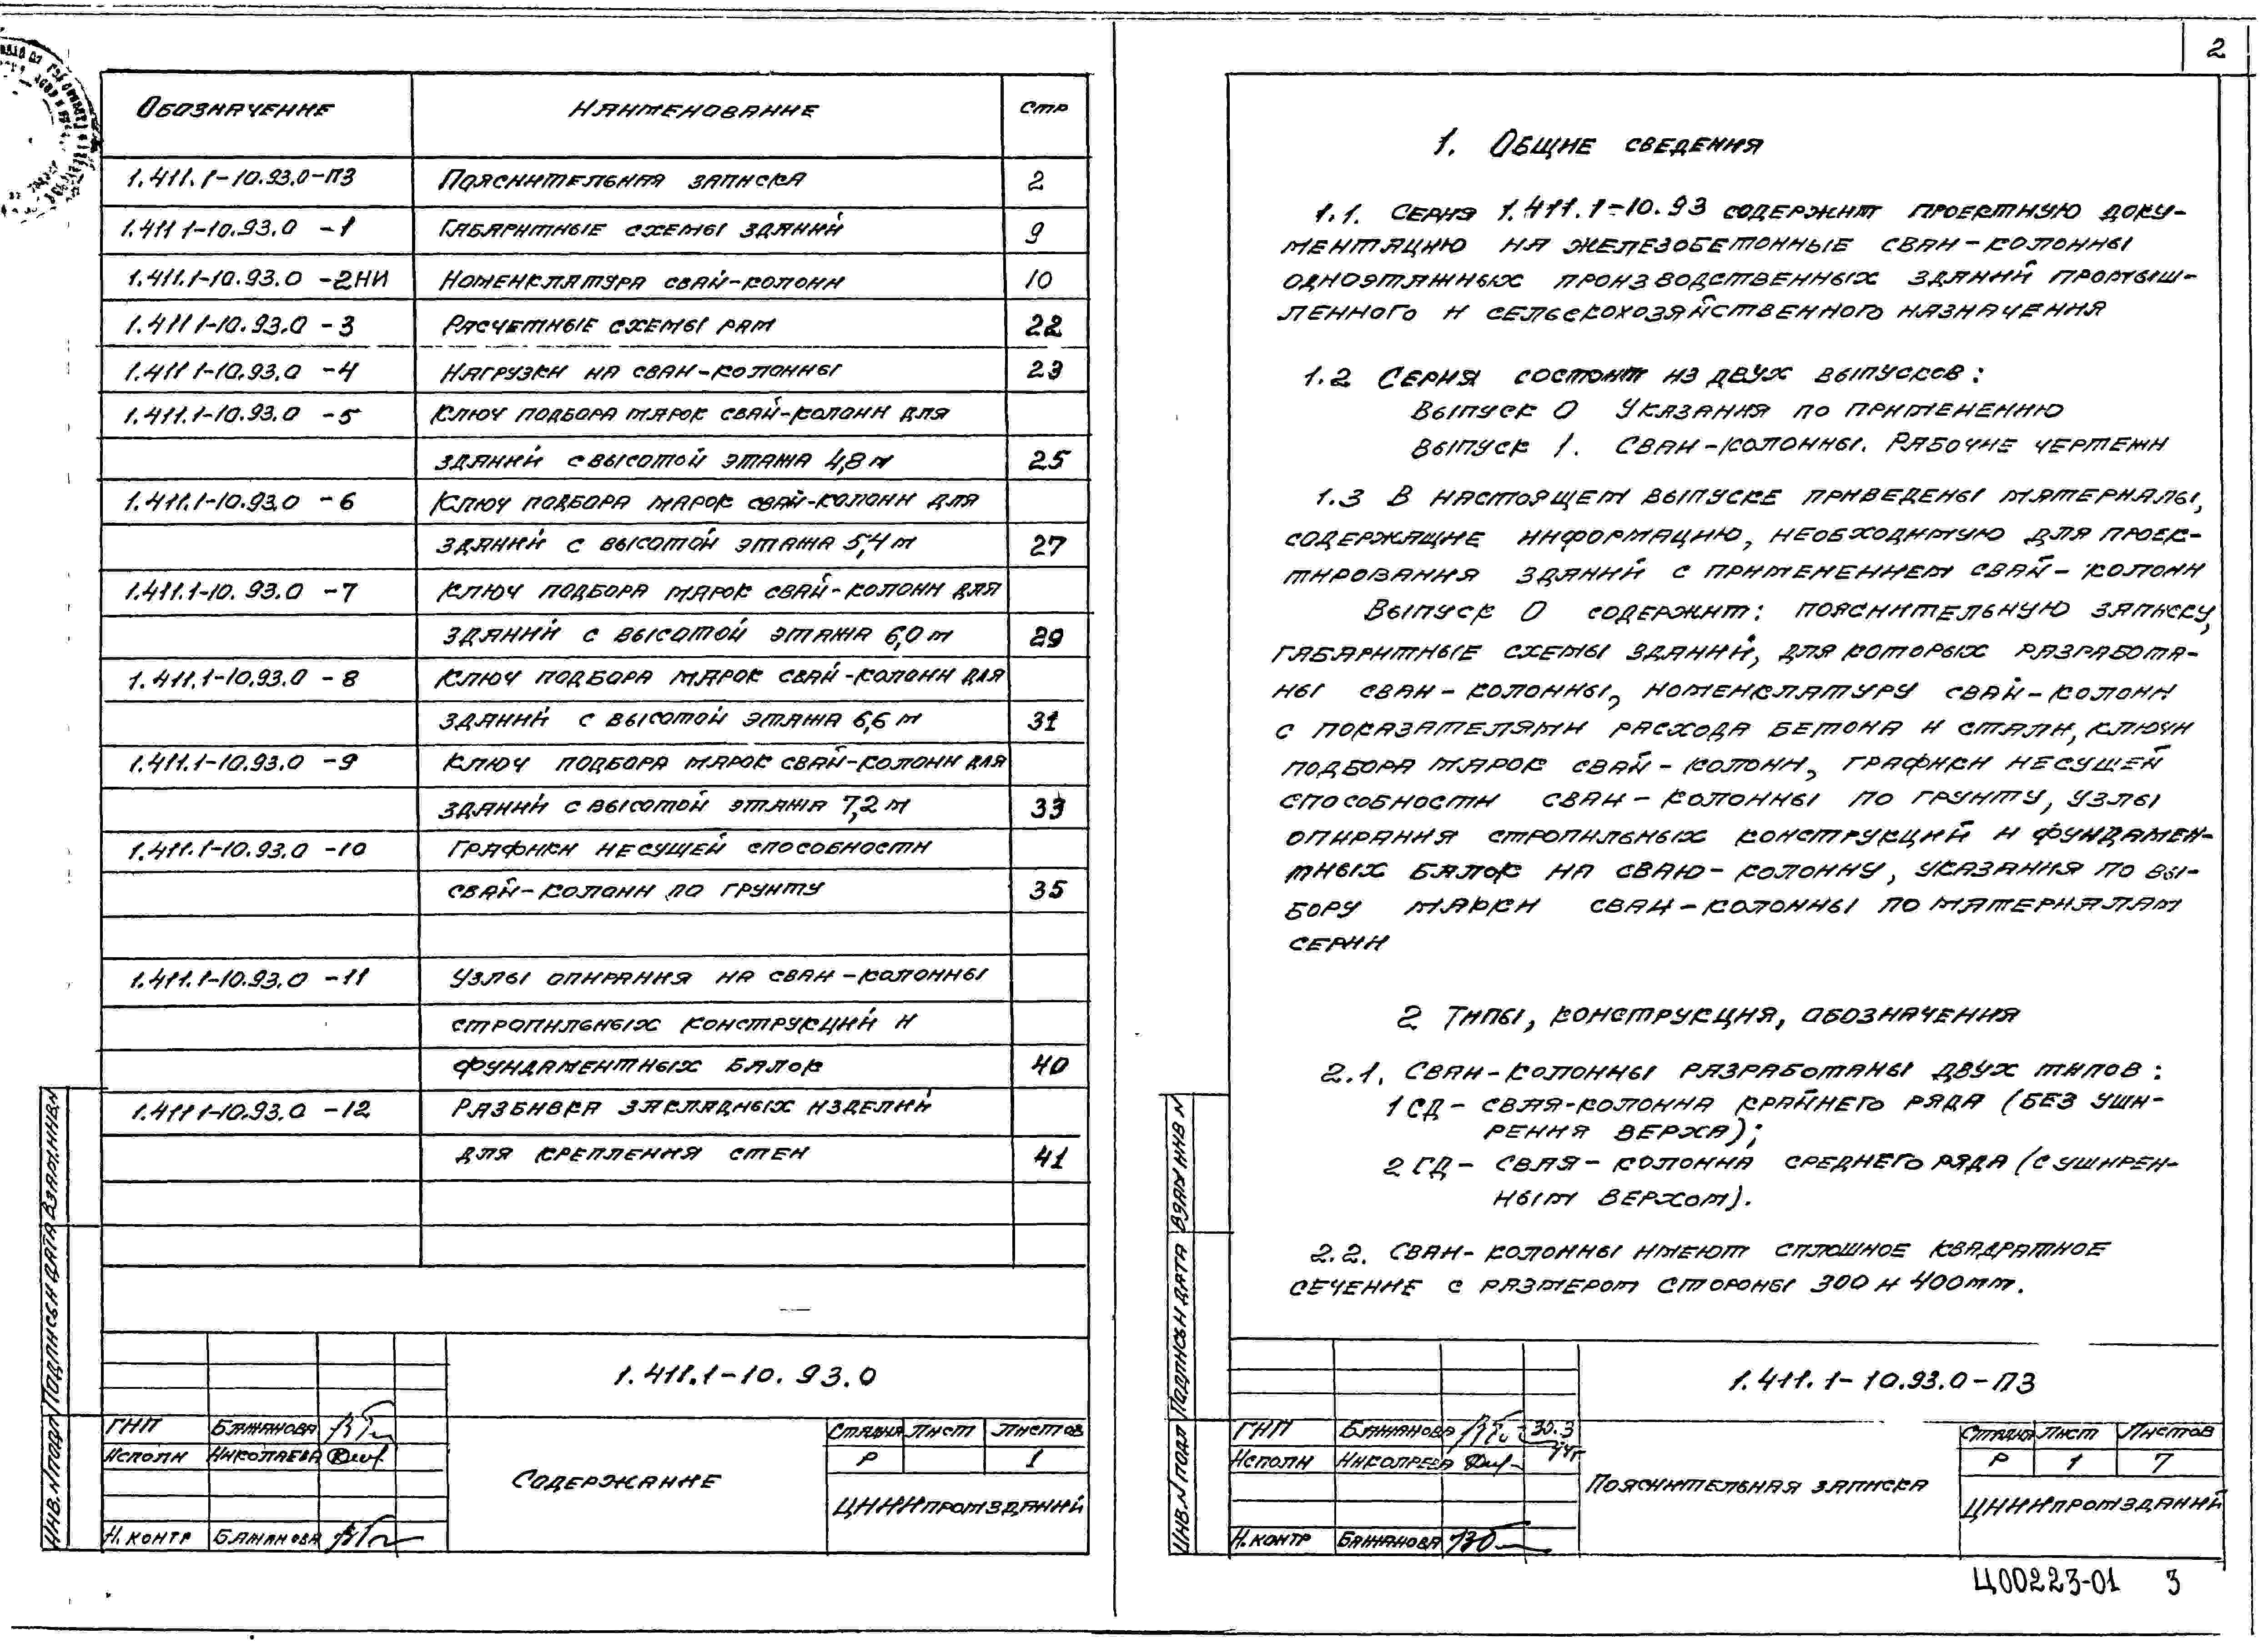 Обозначение Наименование Стр
1.411.1-10.93.0-ПЗ Пояснительная записка 2
1.411 1-10.93.0 -1 Габаритные схемы зданий 9
1.411.1-10.93.0 -2НИ Номенклатура свай-колонн 10
1.411 1-10.93.0 -3 Расчетные схемы рам 22
1.411 1-10.93.0 -4 Нагрузки на сваи-колонны 23
1.411.1-10.93.0 -5 Ключ подбора марок свай-колонн для
зданий с высотой этажа 4,8 м 25
1.411.1-10.93.0 -6 Ключ подбора марок свай-колонн для
зданий с высотой этажа 5,4 м 27
1.411.1-10.93.0 -7 Ключ подбора марок свай-колонн для
зданий с высотой этажа 6,0 м 29
1.411.1-10.93.0 -8 Ключ подбора марок свай-колонн для
зданий с высотой этажа 6,6 м 31
1.411.1-10.93.0 -9 Ключ подбора марок свай-колонн для
зданий с высотой этажа 7,2 м 33
1.411.1-10.93.0 -10 Графики несущей способности
свай-колонн по грунту 35
1.411.1-10.93.0 -11 Узлы опирания на сваи-колонны
стропильных конструкций и
фундаментных балок 40
1.411 1-10.93.0 -12 Разбивка закладных изделий
для крепления стен 41
Инв.N подл Подпись и дата Взам.инв.N
1.411.1-10.93.0
ГИП Бажанова
Исполн Николаева
Н.контр Бажанова
Содержание
Стадия Лист Листов
Р 1
ЦНИИпромзданий
2
1. Общие сведения
1.1. Серия 1.411.1-10.93 содержит проектную доку-
ментацию на железобетонные сваи-колонны
одноэтажных производственных зданий промыш-
ленного и сельскохозяйственного назначения
1.2 Серия состоит из двух выпусков:
Выпуск 0 Указания по применению
Выпуск 1. Сваи-колонны. Рабочие чертежи
1.3 В настоящем выпуске приведены материалы,
содержащие информацию, необходимую для проек-
тирования зданий с применением свай-колонн
Выпуск 0 содержит: пояснительную записку,
габаритные схемы зданий, для которых разработа-
ны сваи-колонны, номенклатуру свай-колонн
с показателями расхода бетона и стали, ключи
подбора марок свай-колонн, графики несущей
способности сваи-колонны по грунту, узлы
опирания стропильных конструкций и фундамен-
тных балок на сваю-колонну, указания по вы-
бору марки сваи-колонны по материалам
серии
2 Типы, конструкция, обозначения
2.1. Сваи-колонны разработаны двух типов:
1СД- свая-колонна крайнего ряда (без уши-
рения верха);
2СД- свая-колонна среднего ряда (с уширен-
ным верхом).
2.2. Сваи-колонны имеют сплошное квадратное
сечение с размером стороны 300 и 400мм.
Инв.N подл Подпись и дата Взам инв N
1.411.1-10.93.0-ПЗ
ГИП Бажанова 30.3
Исполн Николаева
Н.контр Бажанова
Пояснительная записка
Стадия Лист Листов
Р 1 7
ЦНИИпромзданий
Ц00223-01 3